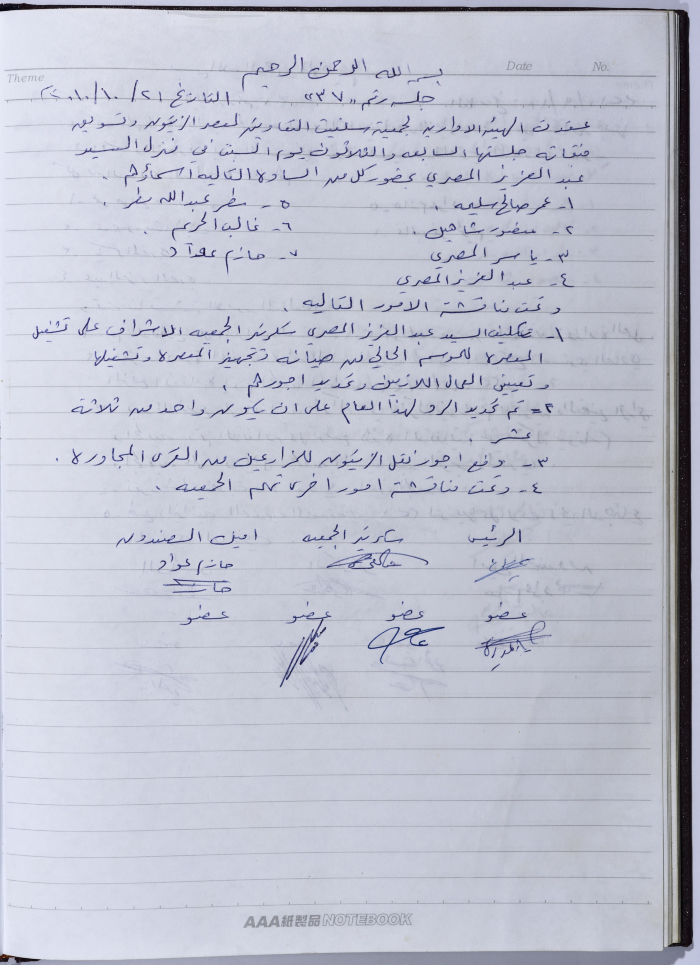 Theme
Date
No.
بسم الله الرحمن الرحيم
جلسة رقم "٣٧" التاريخ ٢١/١٠/
عقدت الهيئة الادارية لجمعية سلفيت التعاونية لعصر الزيتون وتسويق
منتجاته جلستها السابعه والثلاثون يوم السبت في منزل السيد
عبد العزيز المصري بحضور كل من السادة التاليه اسماؤهم .
١- عمر صالح سليمه . ٥- مطر عبدالله مطر .
٢- منصور شاهين . ٦- غالب .
٣- ياسر المصري ٧- حازم عواد
٤- عبد العزيز المصري
وتمت مناقشة الامور التاليه .
١- تكليف السيد عبد العزيز المصري سكرتير الجمعيه الاشراف على تشغيل
المعصرة للموسم الحالي من صيانه وتجهيز المعصرة وتشغيلها
وتعيين العمال اللازمين وتحديد اجورهم .
٢- تم تحديد الرد لهذا العام على ان يكون واحد من ثلاثة
عشر .
٣- دفع اجور نقل الزيتون للمزارعين من القرى المجاورة .
٤- وتمت مناقشة امور اخرى تهم الجمعيه .
الرئيس سكرتير الجمعيه امين الصندوق
حازم عواد
عضو عضو عضو عضو
AAA紙製品 NOTEBOOK